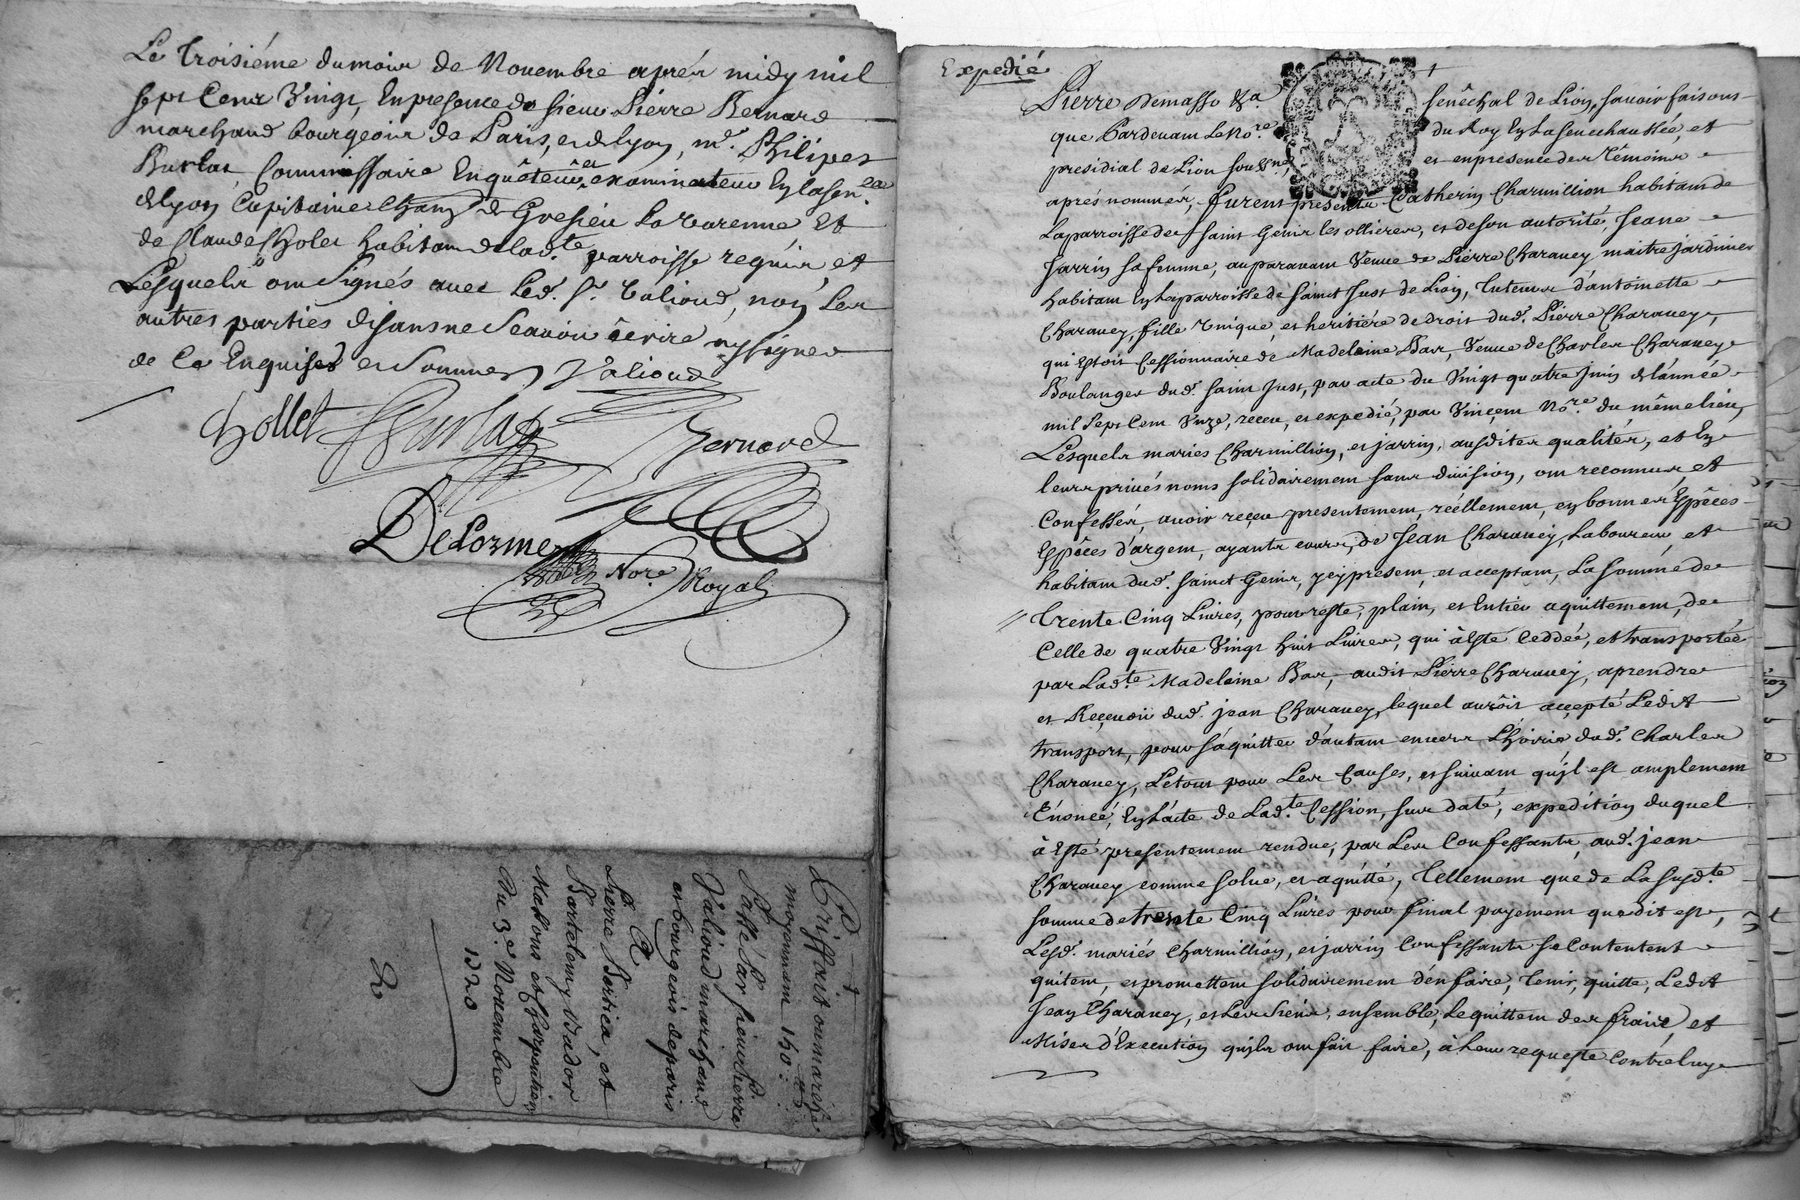 Le troisiéme du mois de Novembre aprés midy mil
sept Cent Vingt, En presence de sieur Pierre Bernard
marchand bourgeois de Paris, et de lyon, mr. Philipes
Burlat, Commissaire Enquêteur, et examinateur En la senlée
de lyon Capitaine de Gresieu la Varenne Et
de Claude Cholet habitant de lad.te parroisse requis et
Lesquels ont signés avec Led. Sr. Valioud, non Les
autres parties disans ne scavoir écrire ny signer
de Ce Enquises et Sommées Valioud
Chollet Burlat Bernard
DeLorme
Nore. Royal
Griffait au marché
moyennant 150:
Passé Par sieur Pierre
Valioud marchand
et bourgeois de paris
A
Pierre et
Bartelemy Bador
Massons et Charpentiers
Du 3e. Novembre
1720
Expedié
Pierre Demasso &a. senêchal de Lion, savoir faisons
que Pardevant Le Nore. du Roy En la senechaussée, et
presidial de Lion sousné, et en presence des témoins
aprés nommés, furent presents Catherin Charmillion habitant de
La parroisse de saint Genis les ollieres, et de son autorité, Jeane
Jarrin sa femme, auparavant Veuve de Pierre Charavey maitre jardinier
habitant En la parroisse de sainct Just de Lion, tuteurs d'antoinette
Charavey, fille unique, et heritiére de droit dud. Pierre Charavey,
qui Estoit Cessionnaire de Madeleine Bar, Veuve de Charles Charavey
Boulanger dud. saint Just, par acte du Vingt quatre juin de l'année
mil sept Cent Unze, receu, et expedié, par Vinçent Nore. du même lieu,
Lesquels mariés Charmillion, et jarrin, ausdites qualités, et En
leurs privés noms solidairement sans division, ont reconnus, et
Confessés, avoir reçeu presentement, réellement, en bonnes Espêces
Espêces d'argent, ayants cours, de Jean Charavey, Laboureur, et
habitant dud. sainct Genis, ycy present, et acceptant, La somme de
trente Cinq Livres, pour reste, plain, et Entier aquittement, de
Celle de quatre Vingt huit Livres, qui à esté Ceddée, et transportée
par Lad.te Madeleine Bar, audit Pierre Charavey, a prendre
et Reçevoir dud. jean Charavey, lequel auroit accepté Ledit
transport, pour s'aquitter d'autant envers L'hoirie dud. Charles
Charavey, Le tout pour Les Causes, et suivant qu'il est amplement
Énoncé, En L'acte de Lad.te Cession, sus daté, expedition duquel
à esté presentement rendue, par Les Confessants, aud. jean
Charavey comme solue, et aquitté, Tellement que de La susd.te
somme de trente Cinq Livres pour final payement que dit est,
Lesd. mariés Charmillion, et jarrin Confessants se Contentent
quitent, et promettent solidairement d'en faire, tenir, quitte, Ledit
Jean Charavey, et Les Siens, ensemble, Le quittent des fraix, et
Mises d'Execution qu'ils ont fait faire, à Leur requeste Contre luy